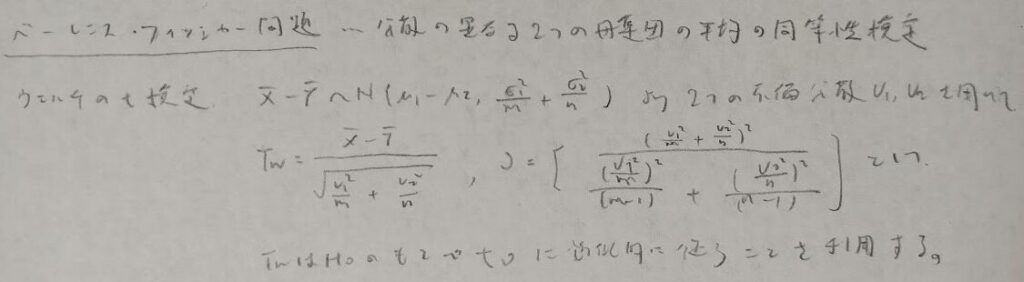 ベーレンス・フィッシャー問題 … 分散の異なる2つの母集団の平均の同等性検定
ウェルチのt検定. X̄-Ȳ ~ N(μ₁-μ₂, σ₁²/m + σ₂²/n) より 2つの不偏分散 U₁, U₂ を用いて
Tw = (X̄-Ȳ) / √(U₁²/m + U₂²/n) , ν = [ (U₁²/m + U₂²/n)² / ( (U₁²/m)²/(m-1) + (U₂²/n)²/(n-1) ) ] として.
TwはH₀のもとでtν に近似的に従うことを利用する。